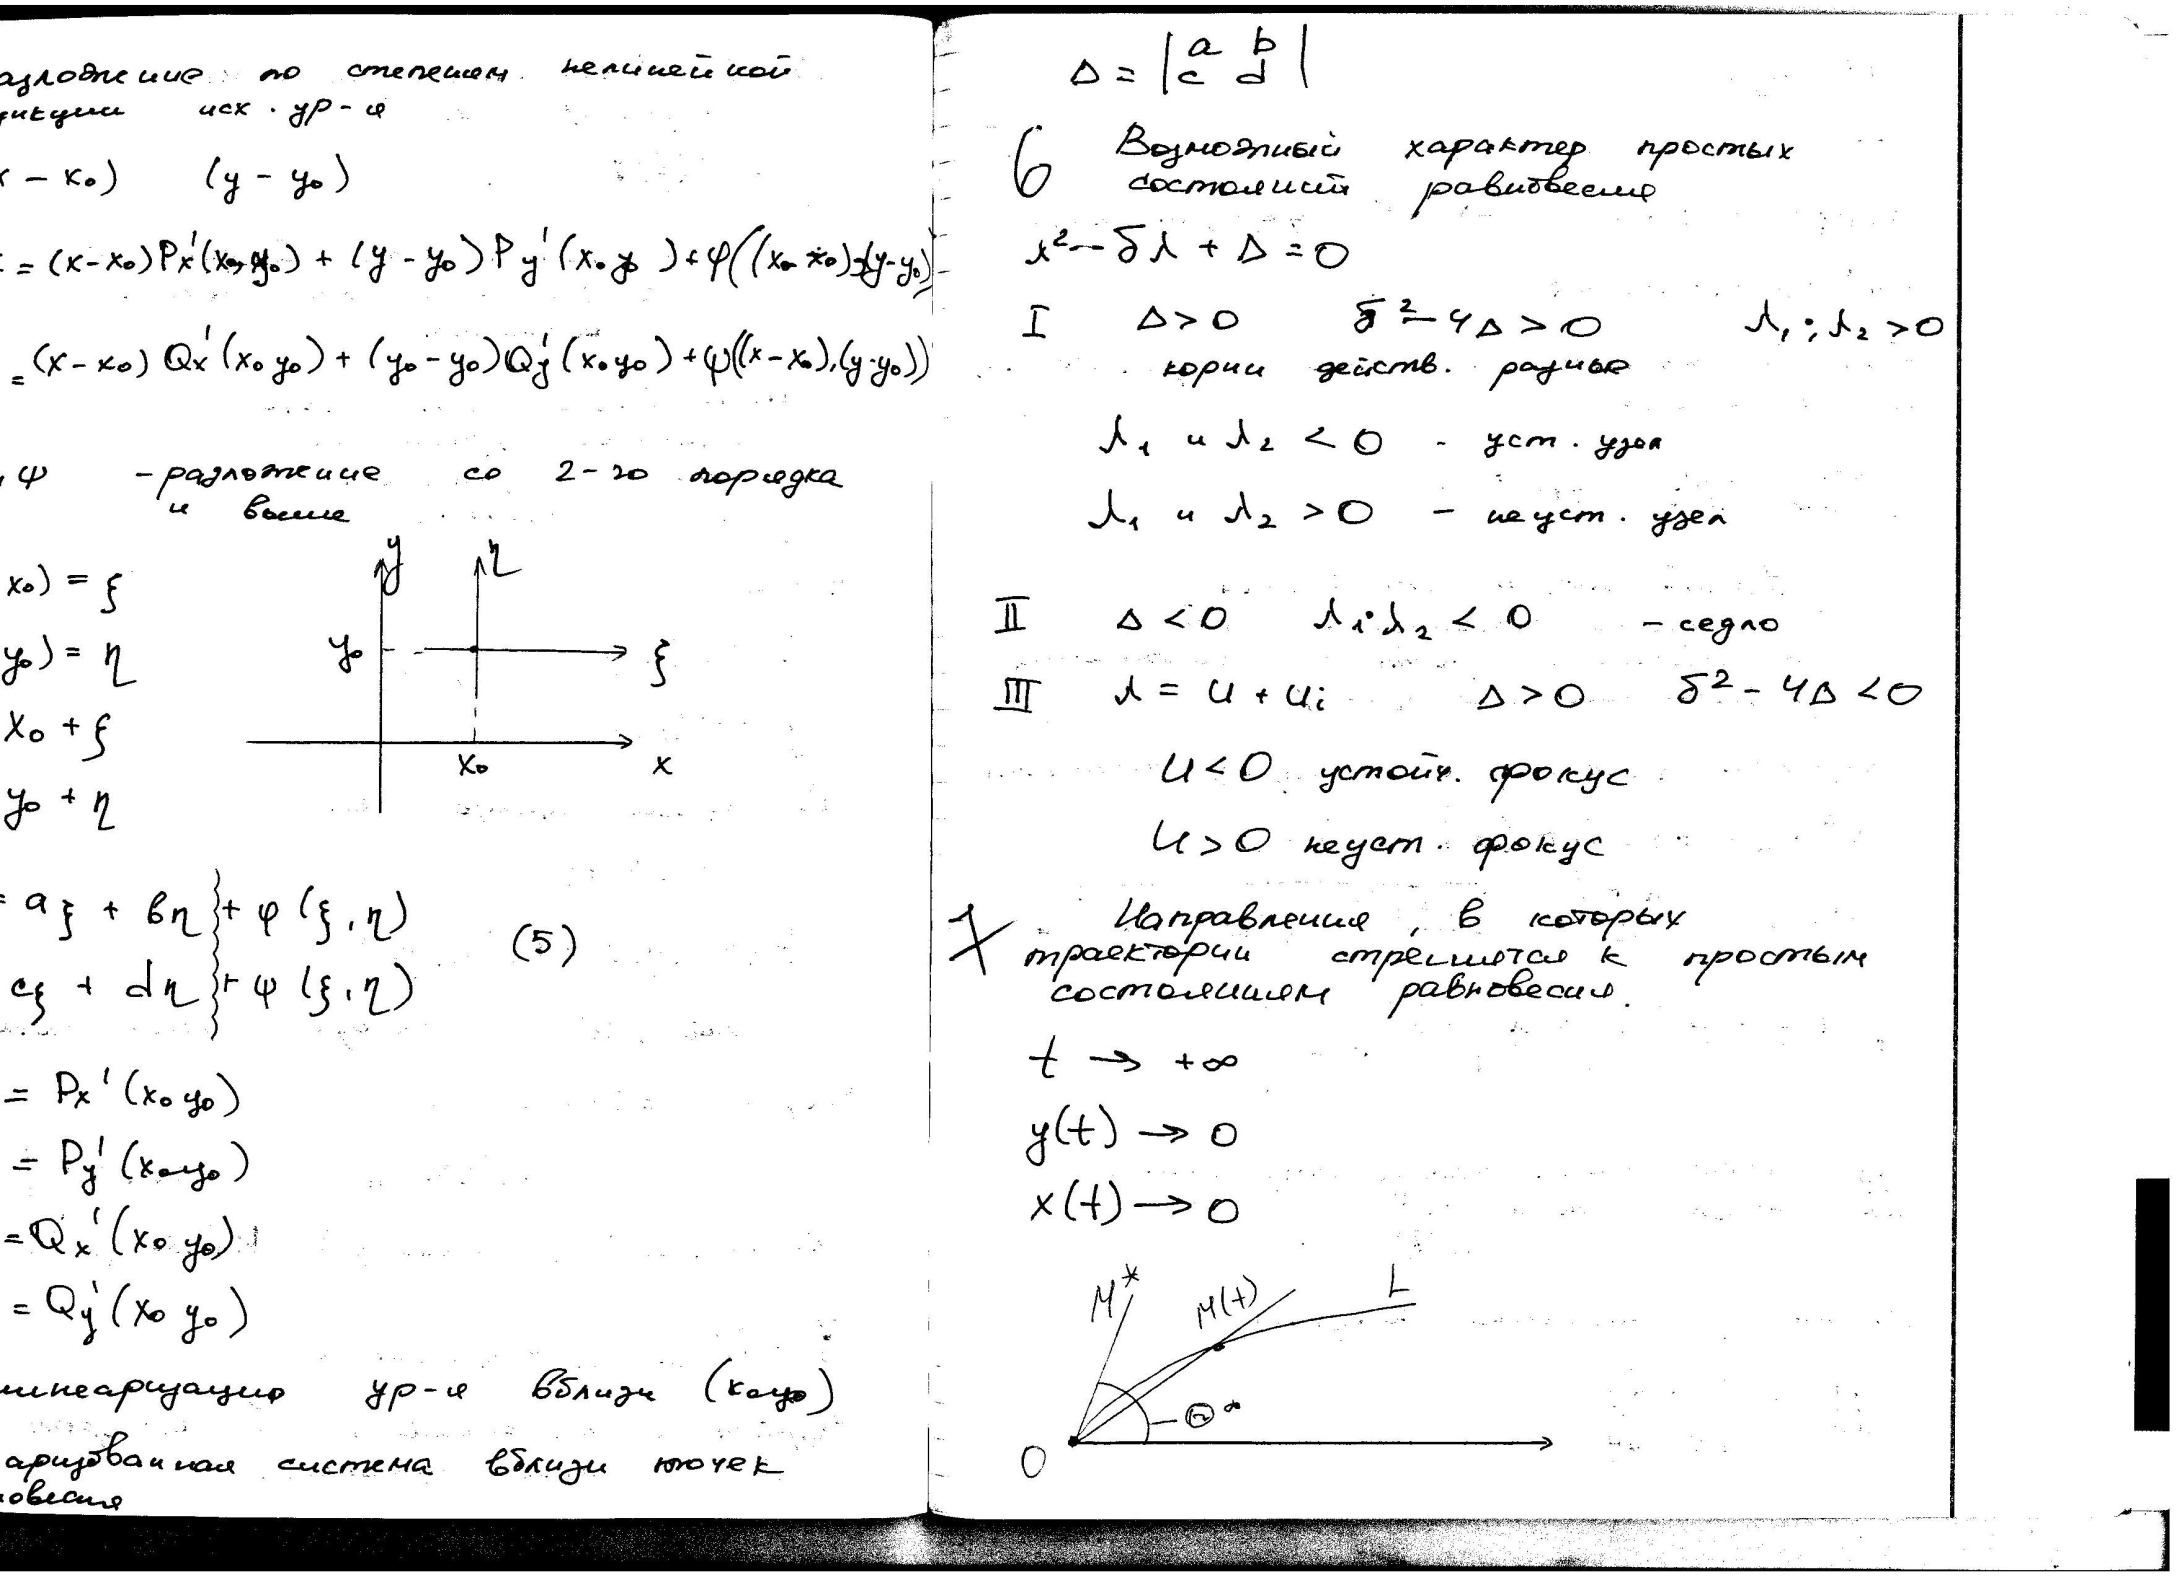 азложение по степеням нелинейной
функции исх. ур-я
x - x₀) (y - y₀)
= (x-x₀)Pₓ'(x₀,y₀) + (y - y₀)P_y'(x₀y₀) + φ((x₀-x₀)(y-y₀))
= (x-x₀)Qₓ'(x₀y₀) + (y₀-y₀)Q_y'(x₀y₀) + ψ((x-x₀),(y-y₀))
, ψ - разложение со 2-го порядка
и выше
y η
x₀) = ξ
y₀) = η
y₀ ξ
x₀ + ξ
x₀ x
y₀ + η
= aξ + bη + φ(ξ,η)
(5)
cξ + dη + ψ(ξ,η)
= Pₓ'(x₀y₀)
= P_y'(x₀y₀)
= Qₓ'(x₀y₀)
= Q_y'(x₀y₀)
линеаризацию ур-я вблизи (x₀y₀)
аризованная система вблизи точек
новесия
Δ = |a b|
|c d|
6 Возможный характер простых
состояний равновесия
λ² - δλ + Δ = 0
I Δ > 0 δ² - 4Δ > 0 λ₁;λ₂ > 0
корни действ. разные
λ₁ и λ₂ < 0 - уст. узел
λ₁ и λ₂ > 0 - неуст. узел
II Δ < 0 λ₁·λ₂ < 0 - седло
III λ = u + ui Δ > 0 δ² - 4Δ < 0
u < 0 устойч. фокус
u > 0 неуст. фокус
7 Направления, в которых
траектории стремятся к простым
состояниям равновесия.
t → +∞
y(t) → 0
x(t) → 0
M* M(t) L
Θ*
O